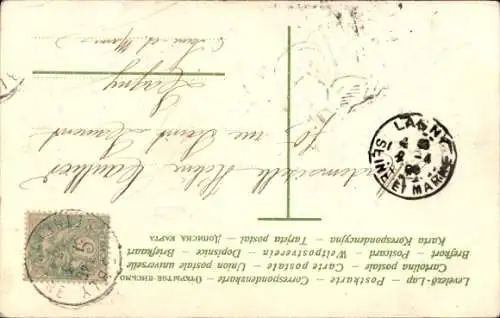 Levelező-Lap — Postkarte — Correspondenzkarte — Открытое письмо
Cartolina postale — Carte postale — Union postale universelle
Brefkort — Postcard — Weltpostverein — Dopisnice — Briefkaart
Karta Korespondencyjna — Tarjeta postal — Дописна карта
Mademoiselle
rue Saint Laurent
Lagny
Seine et Marne
LAGNY
SEINE ET MARNE